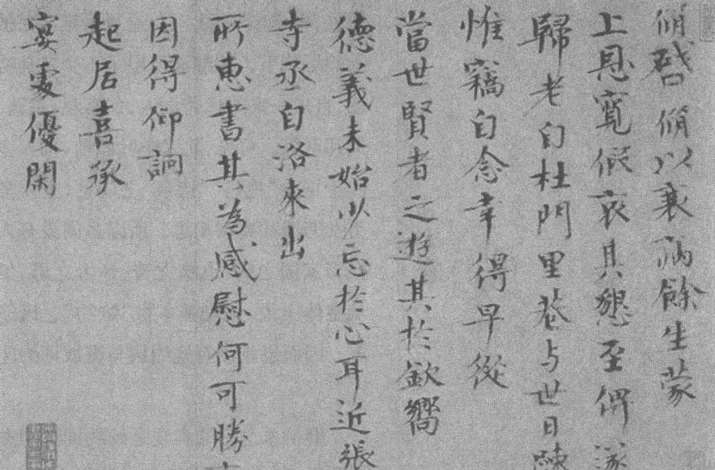 脩啓脩以衰病餘生蒙
上恩寬假哀其懇至俾遂
歸老自杜門里巷与世日疎
惟竊自念幸得早從
當世賢者之遊其於欽嚮
德義未始少忘於心耳近張
寺丞自洛來出
所惠書其為感慰何可勝
因得仰詗
起居喜承
宴處優閑